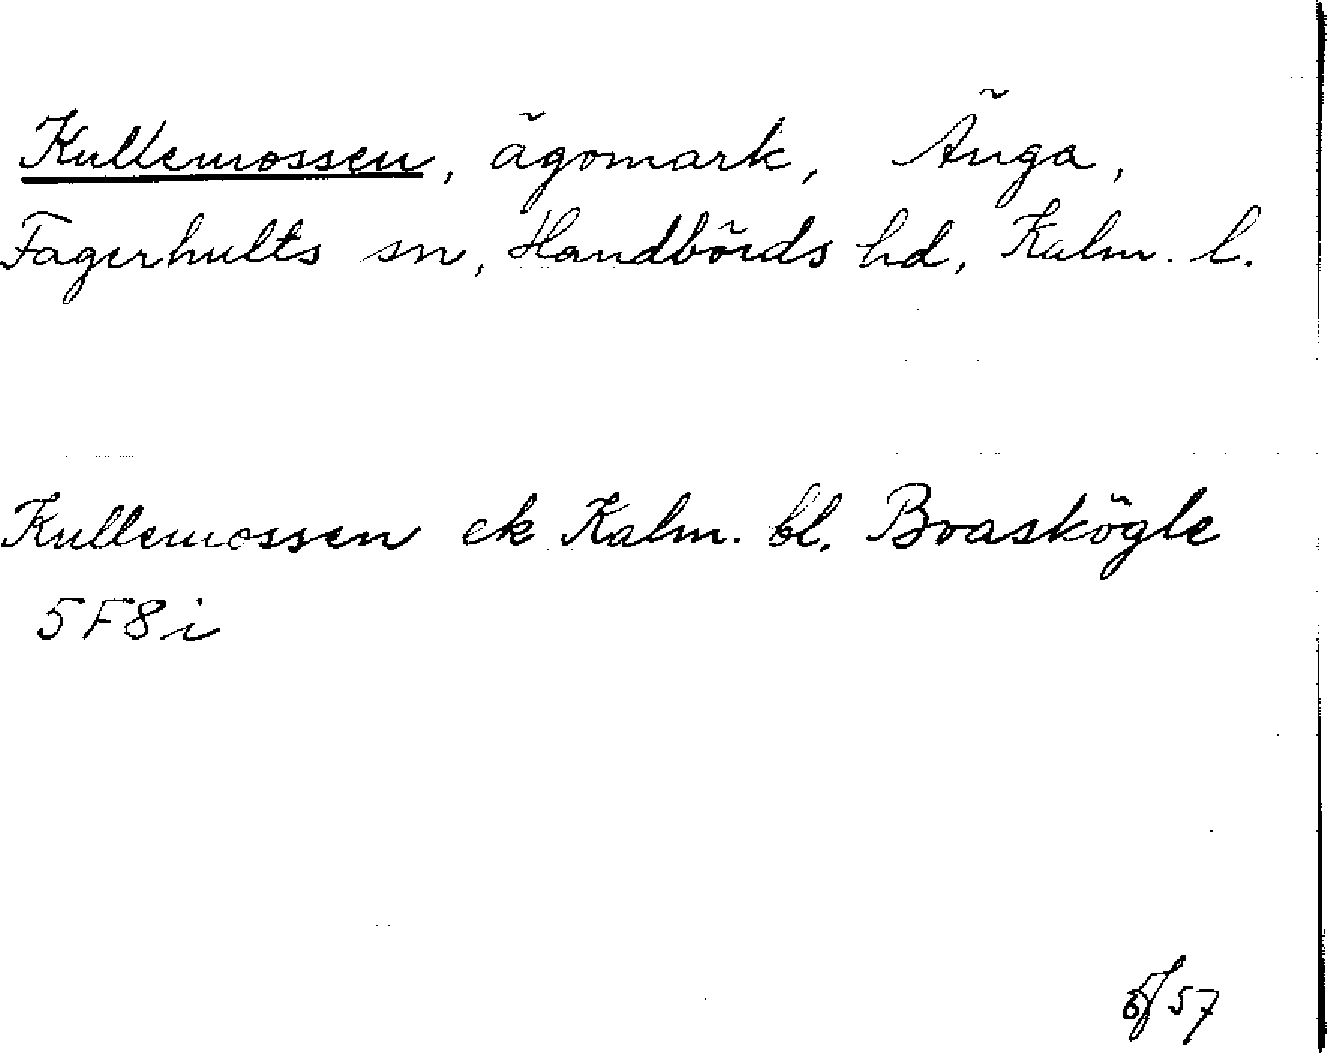 Kullemossen, ägomark, Änga,
Fagerhults sn, Handbörds hd, Kalm. l.
Kullemossen ek Kalm. bl. Braskögle
5F8i
6/57